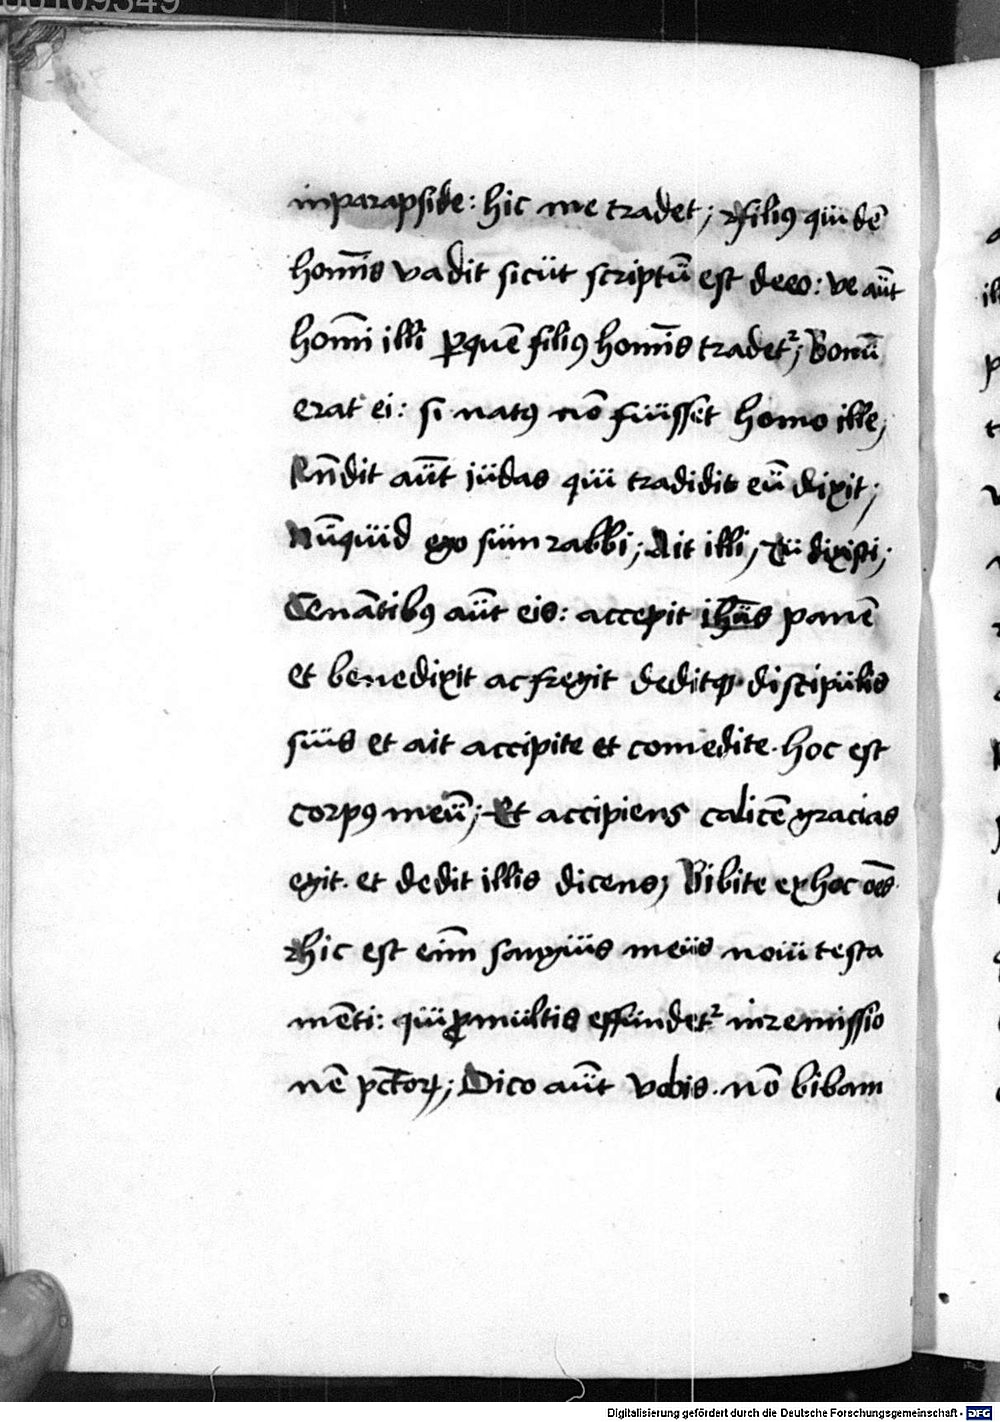 00109349
inparapside: hic me tradet; ⁊ filiꝰ quidē
hoīnis vadit sicut scriptū est deeo: ve aūt
hoīni illi ꝑquē filiꝰ hoīnis tradetᷣ; Bonū
erat ei: si natꝰ nō fuisset homo ille;
Rn̄dit aūt iudas qui tradidit eū dixit;
Nūquid ego sum rabbi; Ait illi; Tu dixisti;
Cenātibꝰ aūt eis: accepit ih̄us panē
et benedixit ac fregit deditqꝫ discipulis
suis et ait accipite et comedite. hoc est
corpꝰ meū; Et accipiens calicē gracias
egit. et dedit illis dicens; Bibite ex hoc oēs.
⁊hic est eīm sangius meus noui testa
mēti: qui ꝓmultis effundetᷣ inremissio
nē pctōꝝ; Dico aūt vobis. nō bibam
Digitalisierung gefördert durch die Deutsche Forschungsgemeinschaft - DFG